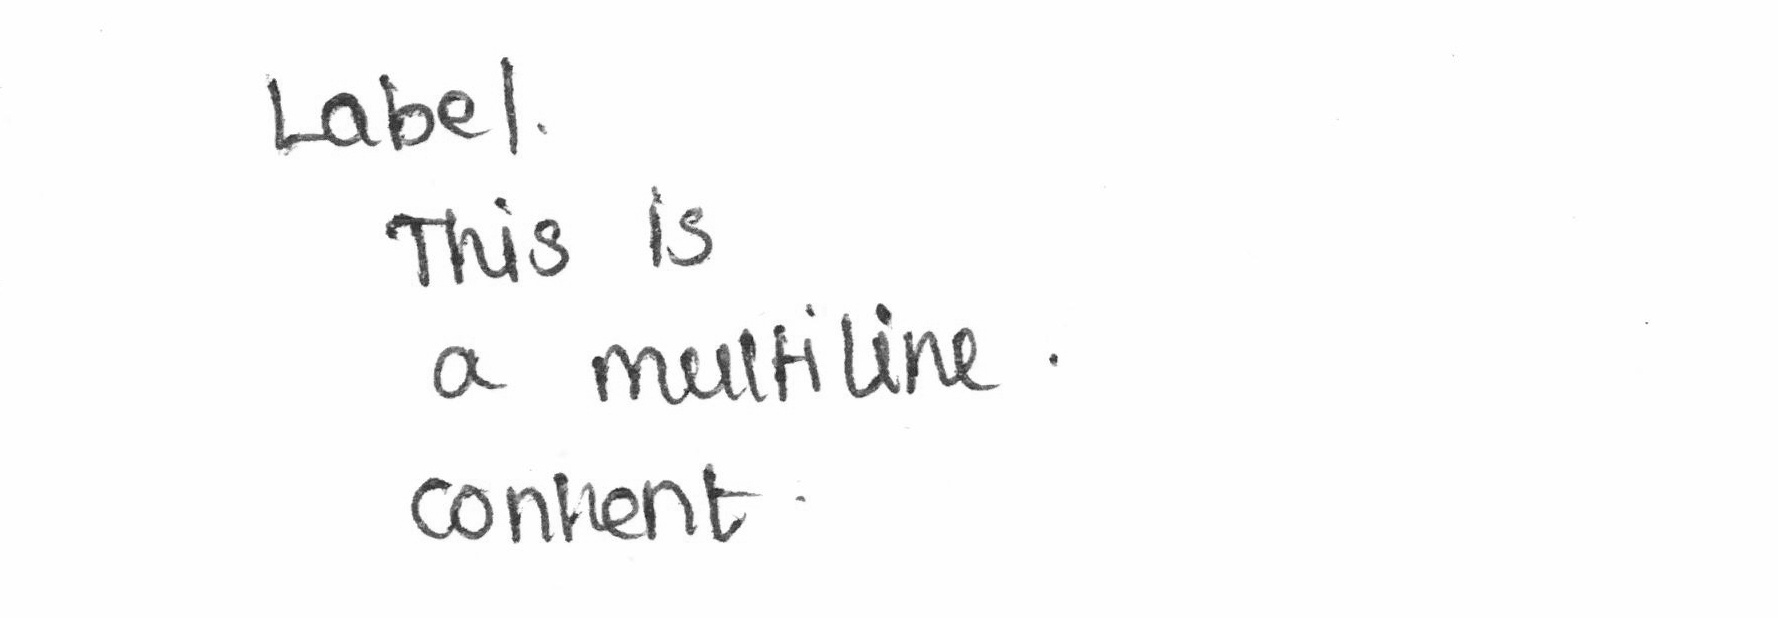 Label.
This is
a multiline .
content .